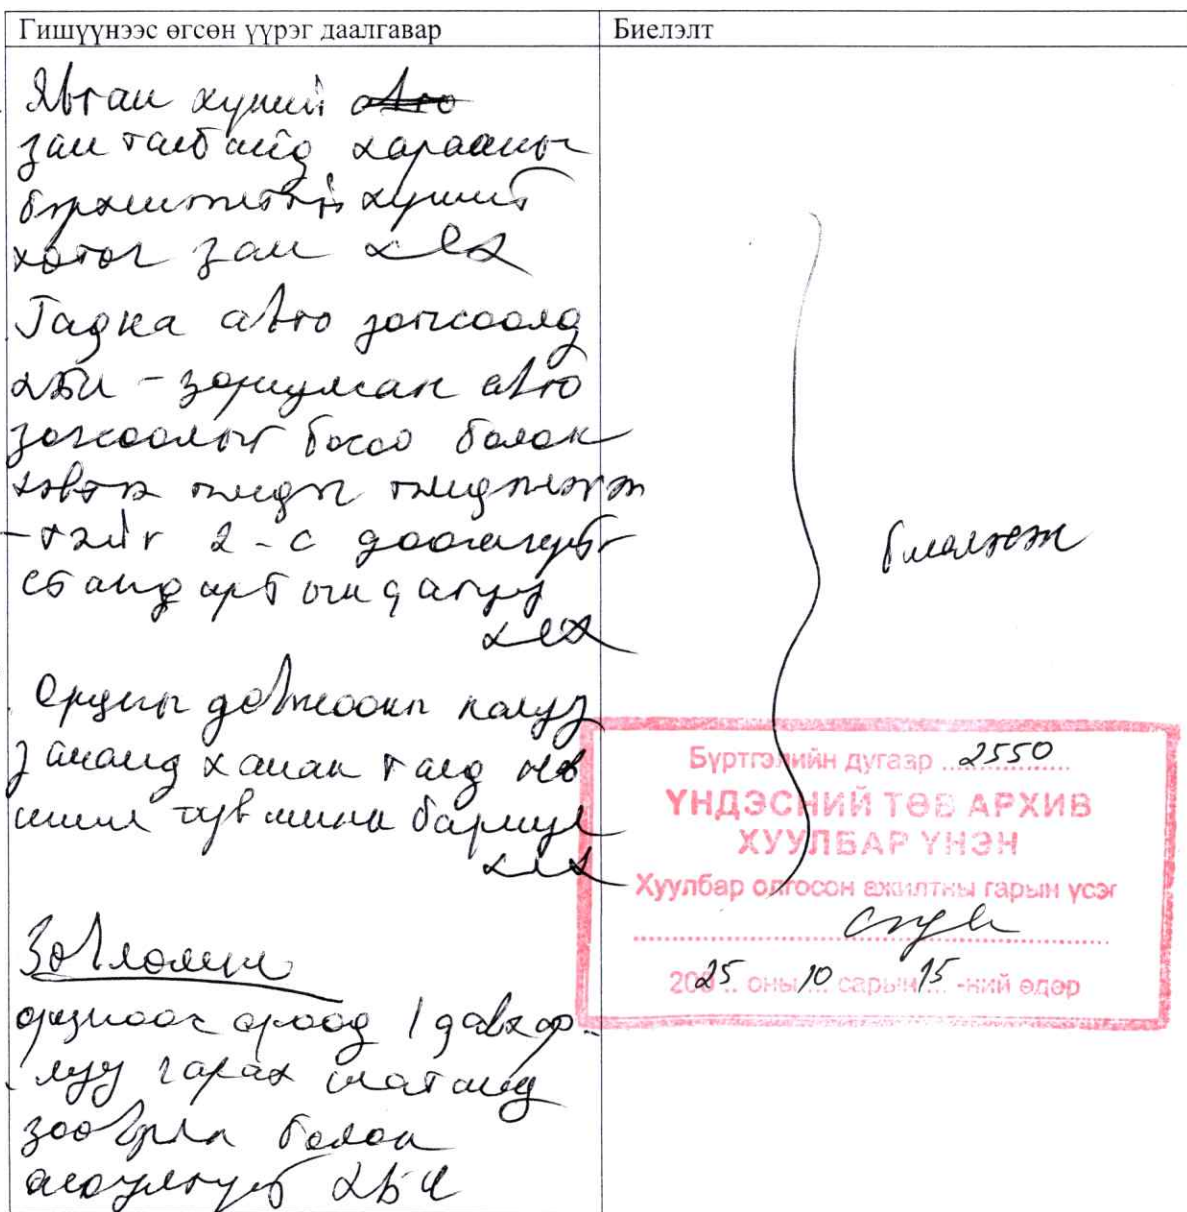 Гишүүнээс өгсөн үүрэг даалгавар
Биелэлт
Явган хүний авто
зам талбайд харааны
бэрхшээлтэй хүний
хөтөч зам хийх
Гадна авто зогсоолд
ХБИ - зориулсан авто
зогсоолыг босоо болон
хэвтээ тэмдэг тэмдэглэгээ
-тэйг 2-с доошгүй
стандартын дагуу
хийх
Орцны довжооны налуу
замд хана талд
түвшинд бариул
хийх
Зөвлөмж
орцноос ороод 1 давхар
луу гарах шатанд
зөөврийн болон
асуулгуй ХБИ
биелсэн
Бүртгэлийн дугаар 2550
ҮНДЭСНИЙ ТӨВ АРХИВ
ХУУЛБАР ҮНЭН
Хуулбар олгосон ажилтны гарын үсэг
2025 оны 10 сарын 15 -ний өдөр